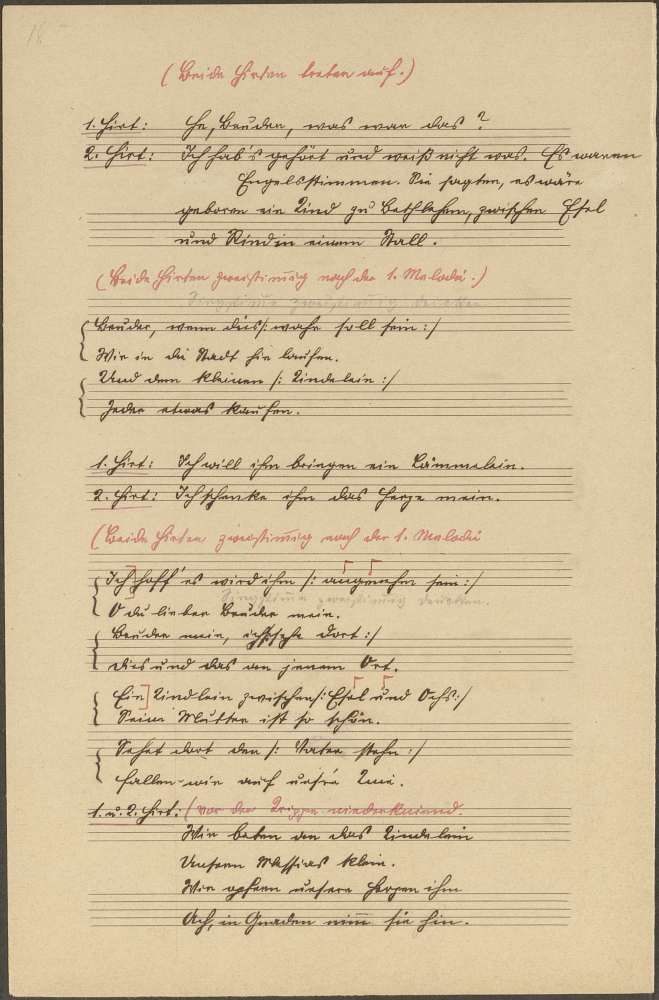 18
(Beide Hirten treten auf.)
1. Hirt: He, Bruder, was war das?
2. Hirt: Ich hab's gehört und weiß nicht was. Es waren
Engelsstimmen. Sie sagten, es wäre
geboren ein Kind zu Bethlehem, zwischen Esel
und Rind in einem Stall.
(Beide Hirten zweistimmig nach der 1. Melodie.)
Singstimme zweistimmig drucken
Bruder, wenn dies /: wahr soll sein :/
Wir in die Stadt hin laufen.
Und dem kleinen /: Kindelein :/
Jeder etwas kaufen.
1. Hirt: Ich will ihm bringen ein Lämmelein.
2. Hirt: Ich schenke ihm das Herze mein.
(Beide Hirten zweistimmig nach der 1. Melodie
Ich] hoff' es wird ihm /: angenehm sein :/
Singstimme zweistimmig drucken.
O du lieber Bruder mein.
Bruder mein, ich sehe dort :/
Dies und das an jenem Ort.
Ein] Kindlein zwischen /: Esel und Ochs :/
Seine Mutter ist so schön.
Sehet dort den /: Vater stehn :/
Fallen wir auf unsre Knie.
1. u. 2. Hirt: (vor der Krippe niederkniend.
Wir beten an das Kindelein
Unsern Messias klein.
Wir opfern unsere Herzen ihm
Ach, in Gnaden nim̄ sie hin.